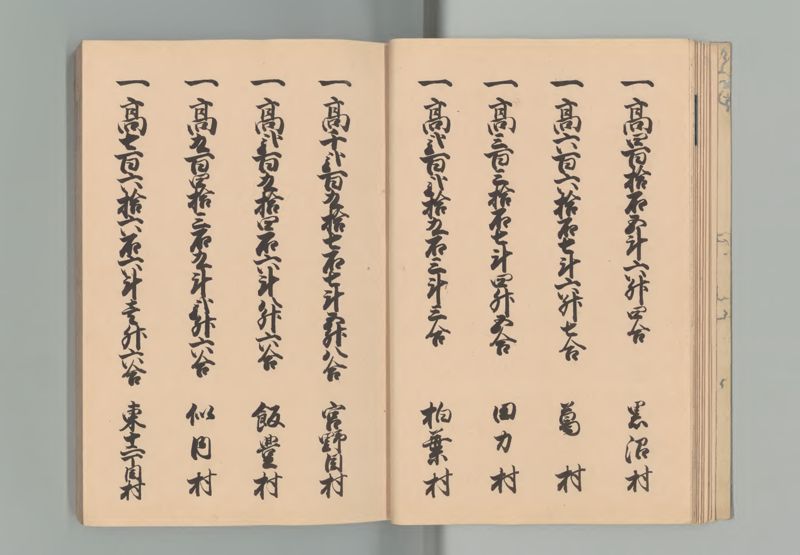 一 高四百拾石五斗六舛四合 黒沼村
一 高六百六拾石七斗六舛七合 葛村
一 高三百三拾石七斗四舛五合 田力村
一 高弐百弐拾九石三斗三合 柏葉村
一 高千弐百九拾七石七斗五舛八合 宮野目村
一 高弐百九拾四石六斗八舛六合 飯豊村
一 高九百四拾三石九斗弐舛六合 似内村
一 高七百六拾六石六斗壱舛六合 東十二丁目村